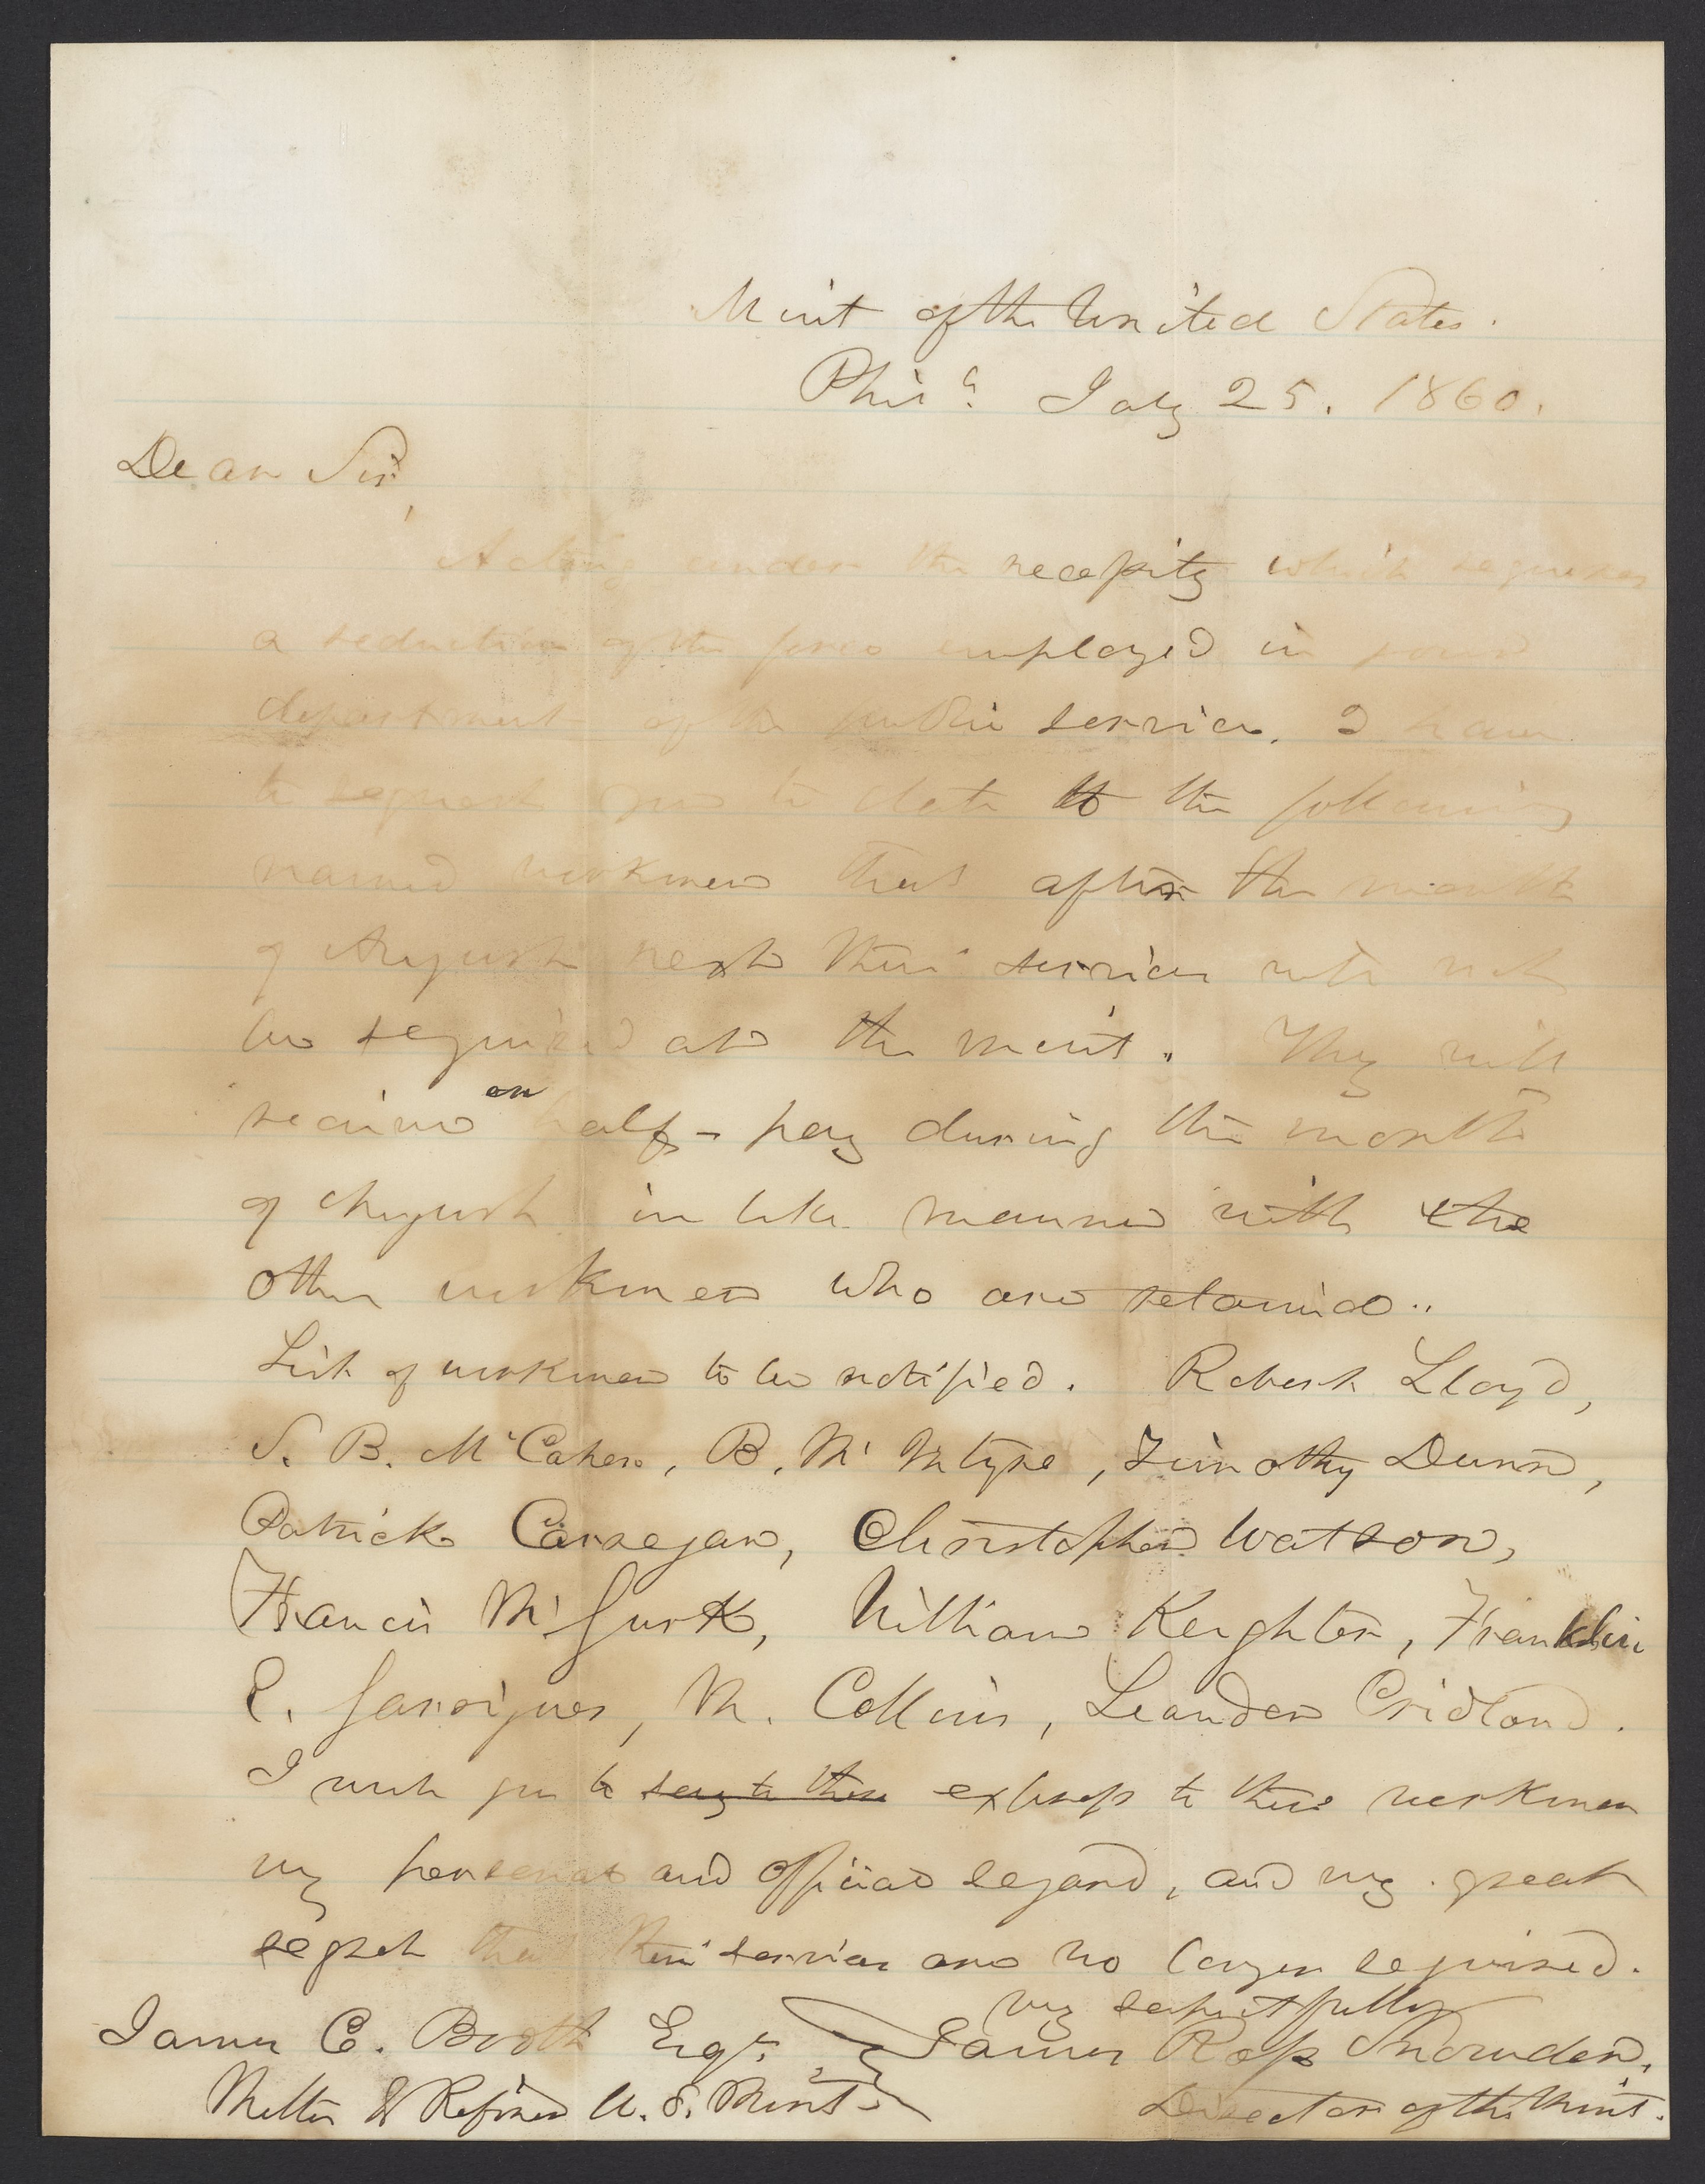 Mint of the United States.
Phila. July 25. 1860.
Dear Sir,
Acting under the necessity which requires
a reduction of the force employed in your
department of the public service, I have
to request you to state to the following
named workmen that after the month
of August next their services will not
be required at the mint. They will
receive on half-pay during the month
of August in like manner with the
other workmen who are retained.
List of workmen to be notified. Robert Lloyd,
S. B. McCahen, B. McIntyre, Timothy Dunn,
Patrick Carregan, Christopher Watson,
Francis McGurk, William Keighter, Franklin
C. Garrigues, M. Collins, Leander Cridland.
I wish you to say to these express to these workmen
my personal and official regard, and my great
regret that their services are no longer required.
Very respectfully
James C. Booth Esqr. James Ross Snowden,
Melter & Refiner U. S. Mint Director of the Mint.